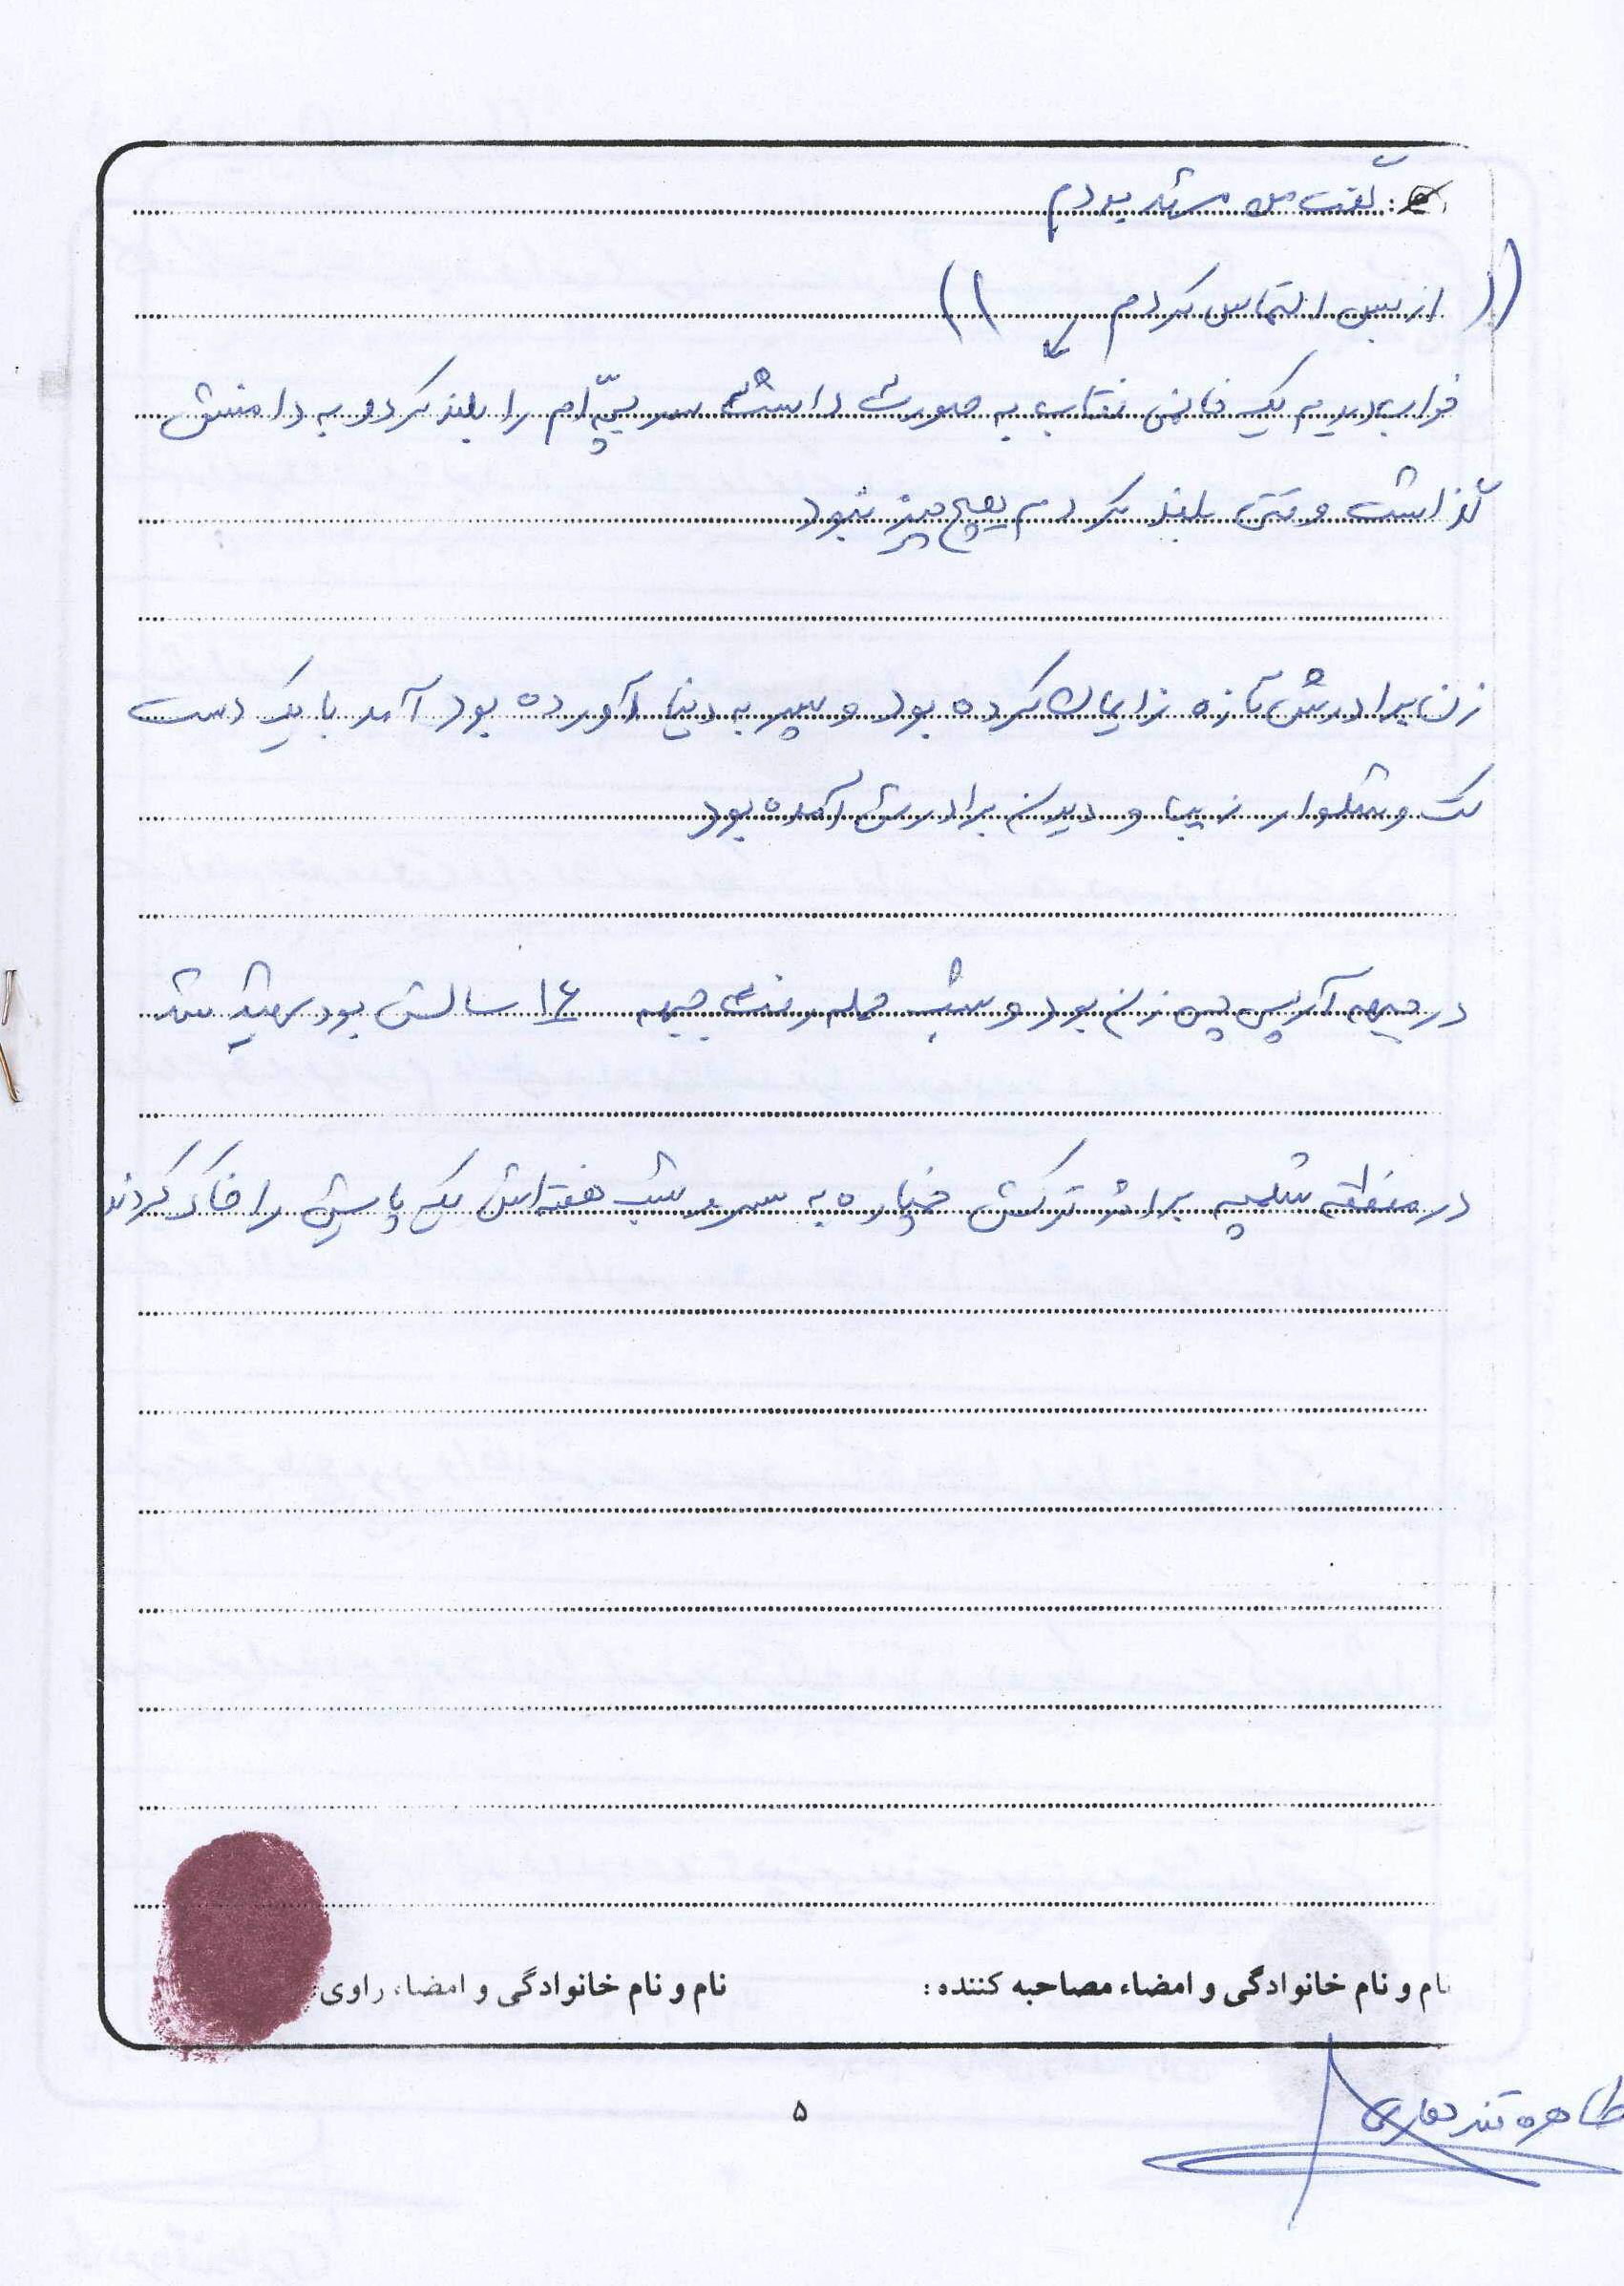 گفت من مشهد بودم
(( از بس التماس کردم ))
خواب دیدم یک خانمی نقاب به صورت داشت سر بچّه‌ام را بلند کرد و به دامنش
گذاشت وقتی بلند کردم هیچ چیز نبود
زن برادرش تازه زایمان کرده بود و پسر به دنیا آورده بود آمد با یک دست
کت و شلوار زیبا و دیدن برادرش آمده بود
در جبهه آرپی جی زن بود و شب حمله رفت جبهه ۱۶ سالش بود شهید شد
در منطقه شلمچه بر اثر ترکش خمپاره به سر و شب هفته‌اش یک پایش را خاک کردند
نام و نام خانوادگی و امضاء مصاحبه کننده :
نام و نام خانوادگی و امضاء راوی:
طاهره قندهاری
۵